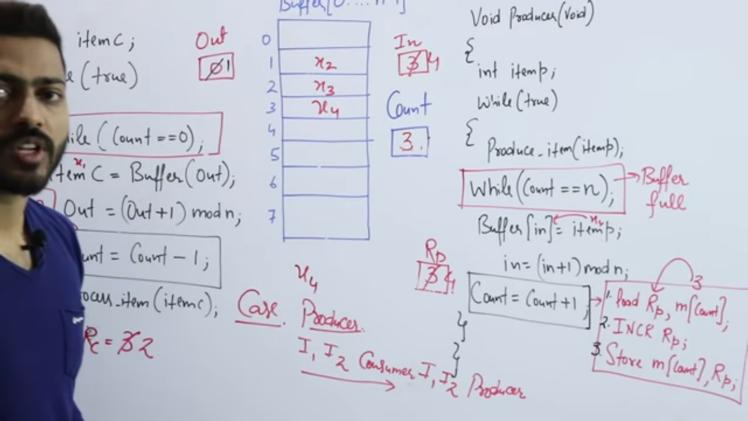 Buffer[0....n-1]
itemC;
(true)
(Count ==0);
x1
item C = Buffer(Out);
Out = (Out+1) mod n;
Count = Count - 1;
Process_item(itemc);
Rc = 3 2
Out
0 1
0
1 x2
2 x3
3 x4
4
5
6
7
In
3 4
Count
3.
x4
Case Producer
I1 I2 Consumer I1 I2 Producer
Rp
3 4
Void Producer(Void)
{
int itemp;
While(true)
{
Produce_item(itemp);
While(Count ==n);
Buffer full
x4
Buffer[in]= itemp;
in=(in+1)mod n;
Count = Count+1;
}
}
3
1. load Rp, m[Count];
2. INCR Rp;
3. Store m[Count], Rp;